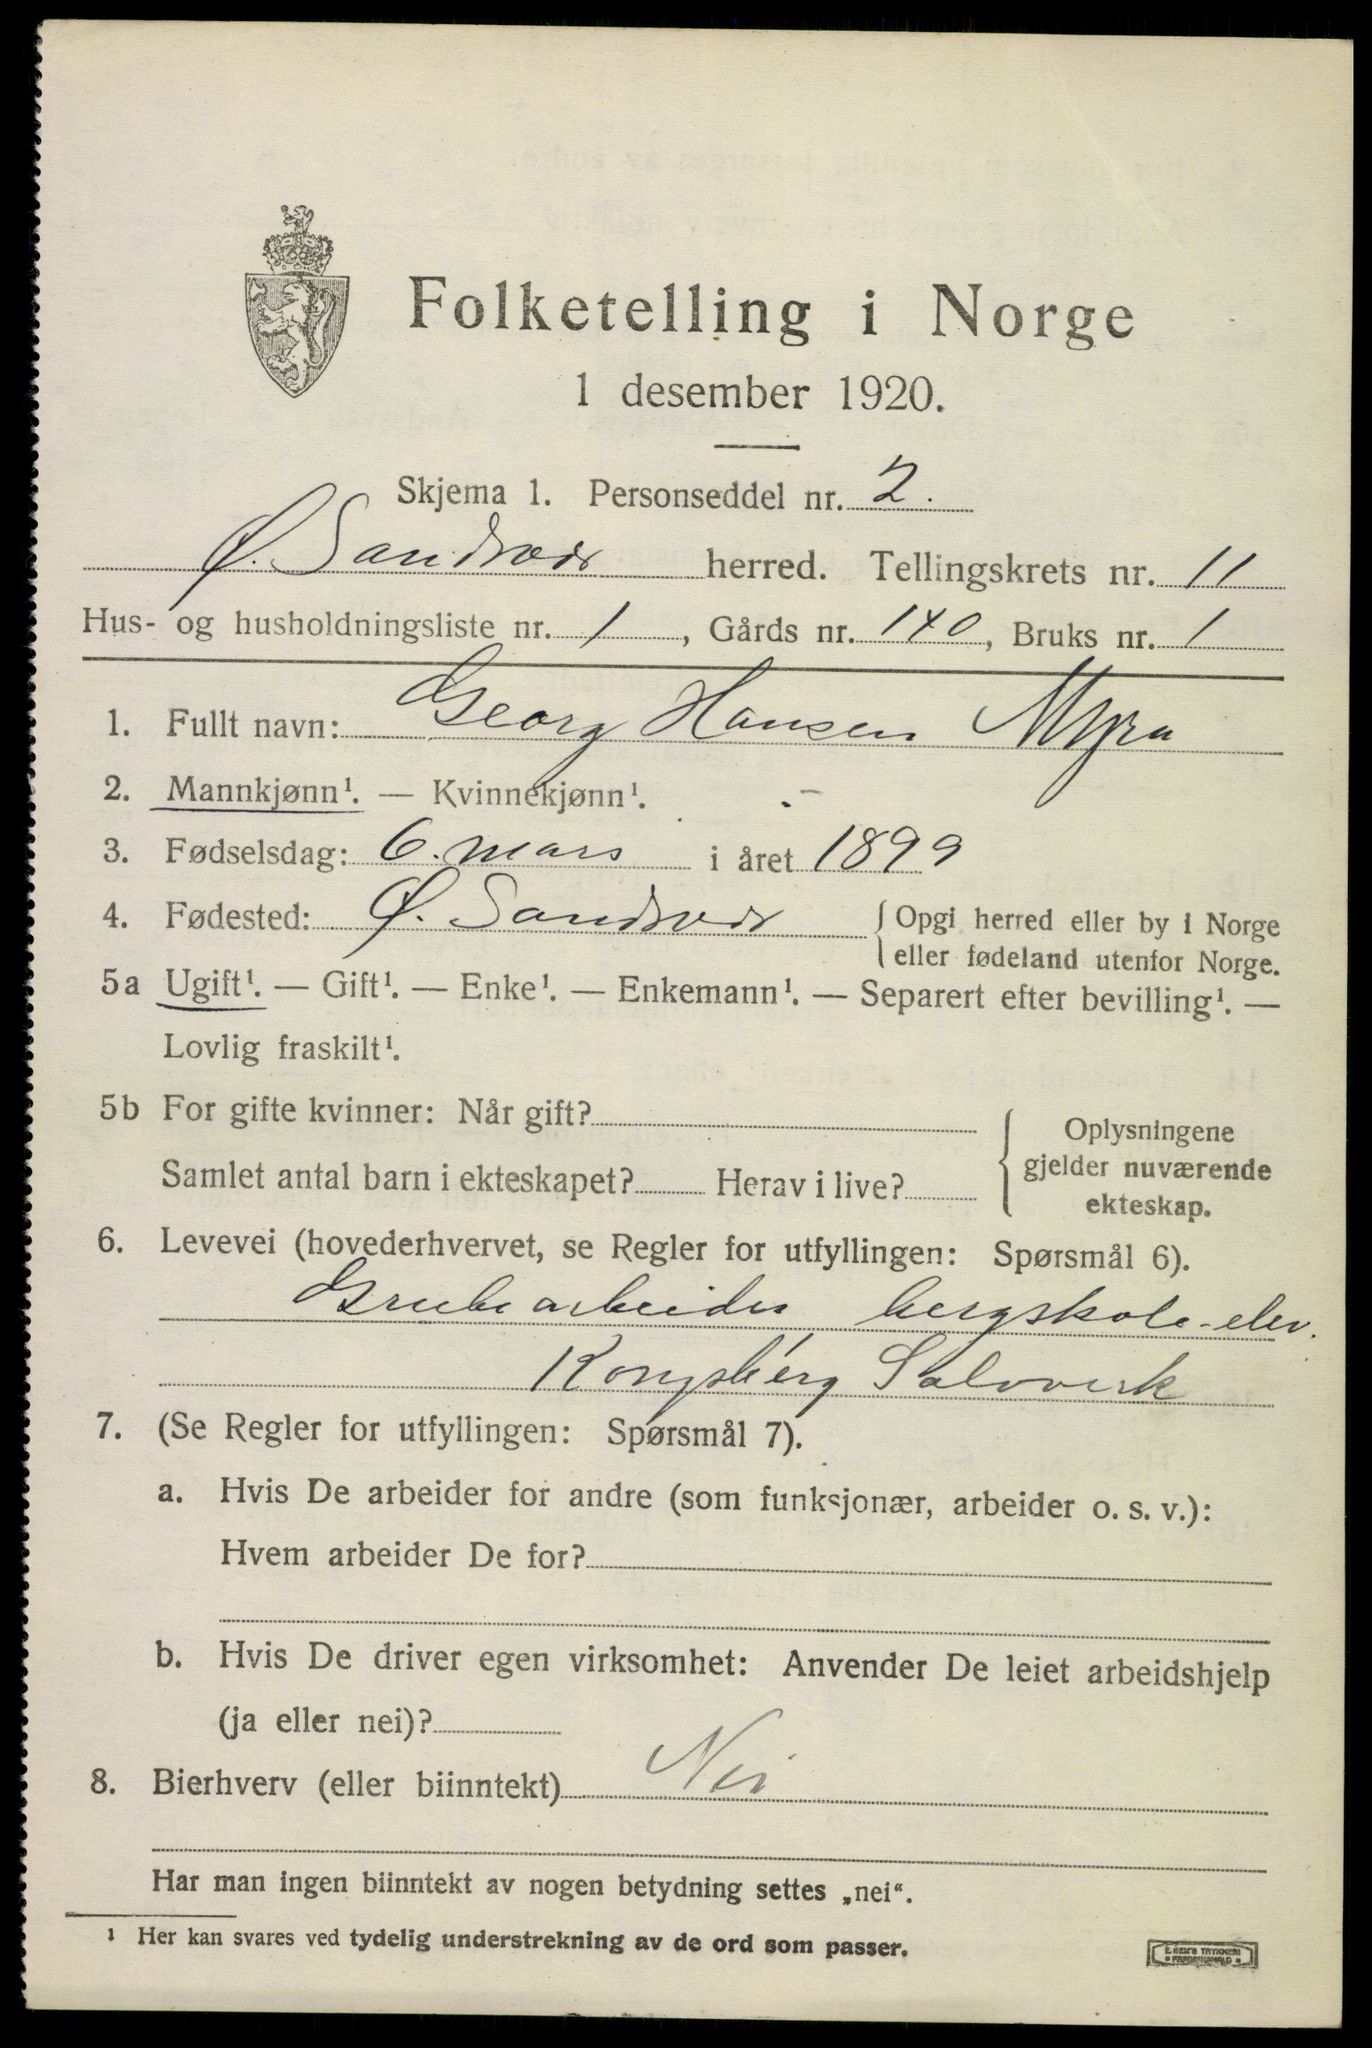 Folketelling i Norge
1 desember 1920.
Skjema 1. Personseddel nr. 2.
Ø. Sandsvær herred. Tellingskrets nr. 11
Hus- og husholdningsliste nr. 1, Gårds nr. 140, Bruks nr. 1
1. Fullt navn: Georg Hansen Myra
2. Mannkjønn¹. — Kvinnekjønn¹.
3. Fødselsdag: 6. mars i året 1899
4. Fødested: Ø. Sandsvær { Opgi herred eller by i Norge
eller fødeland utenfor Norge.
5a Ugift¹. — Gift¹. — Enke¹. — Enkemann¹. — Separert efter bevilling¹. —
Lovlig fraskilt¹.
5b For gifte kvinner: Når gift?
Samlet antal barn i ekteskapet? Herav i live?
{ Oplysningene
gjelder nuværende
ekteskap.
6. Levevei (hovederhvervet, se Regler for utfyllingen: Spørsmål 6).
Grubearbeider bergskole-elev.
Kongsberg Sølvverk
7. (Se Regler for utfyllingen: Spørsmål 7).
a. Hvis De arbeider for andre (som funksjonær, arbeider o. s. v.):
Hvem arbeider De for?
b. Hvis De driver egen virksomhet: Anvender De leiet arbeidshjelp
(ja eller nei)?
8. Bierhverv (eller biinntekt) Nei
Har man ingen biinntekt av nogen betydning settes „nei“.
¹ Her kan svares ved tydelig understrekning av de ord som passer.
E. SEM'S TRYKKERI
FREDRIKSHALD